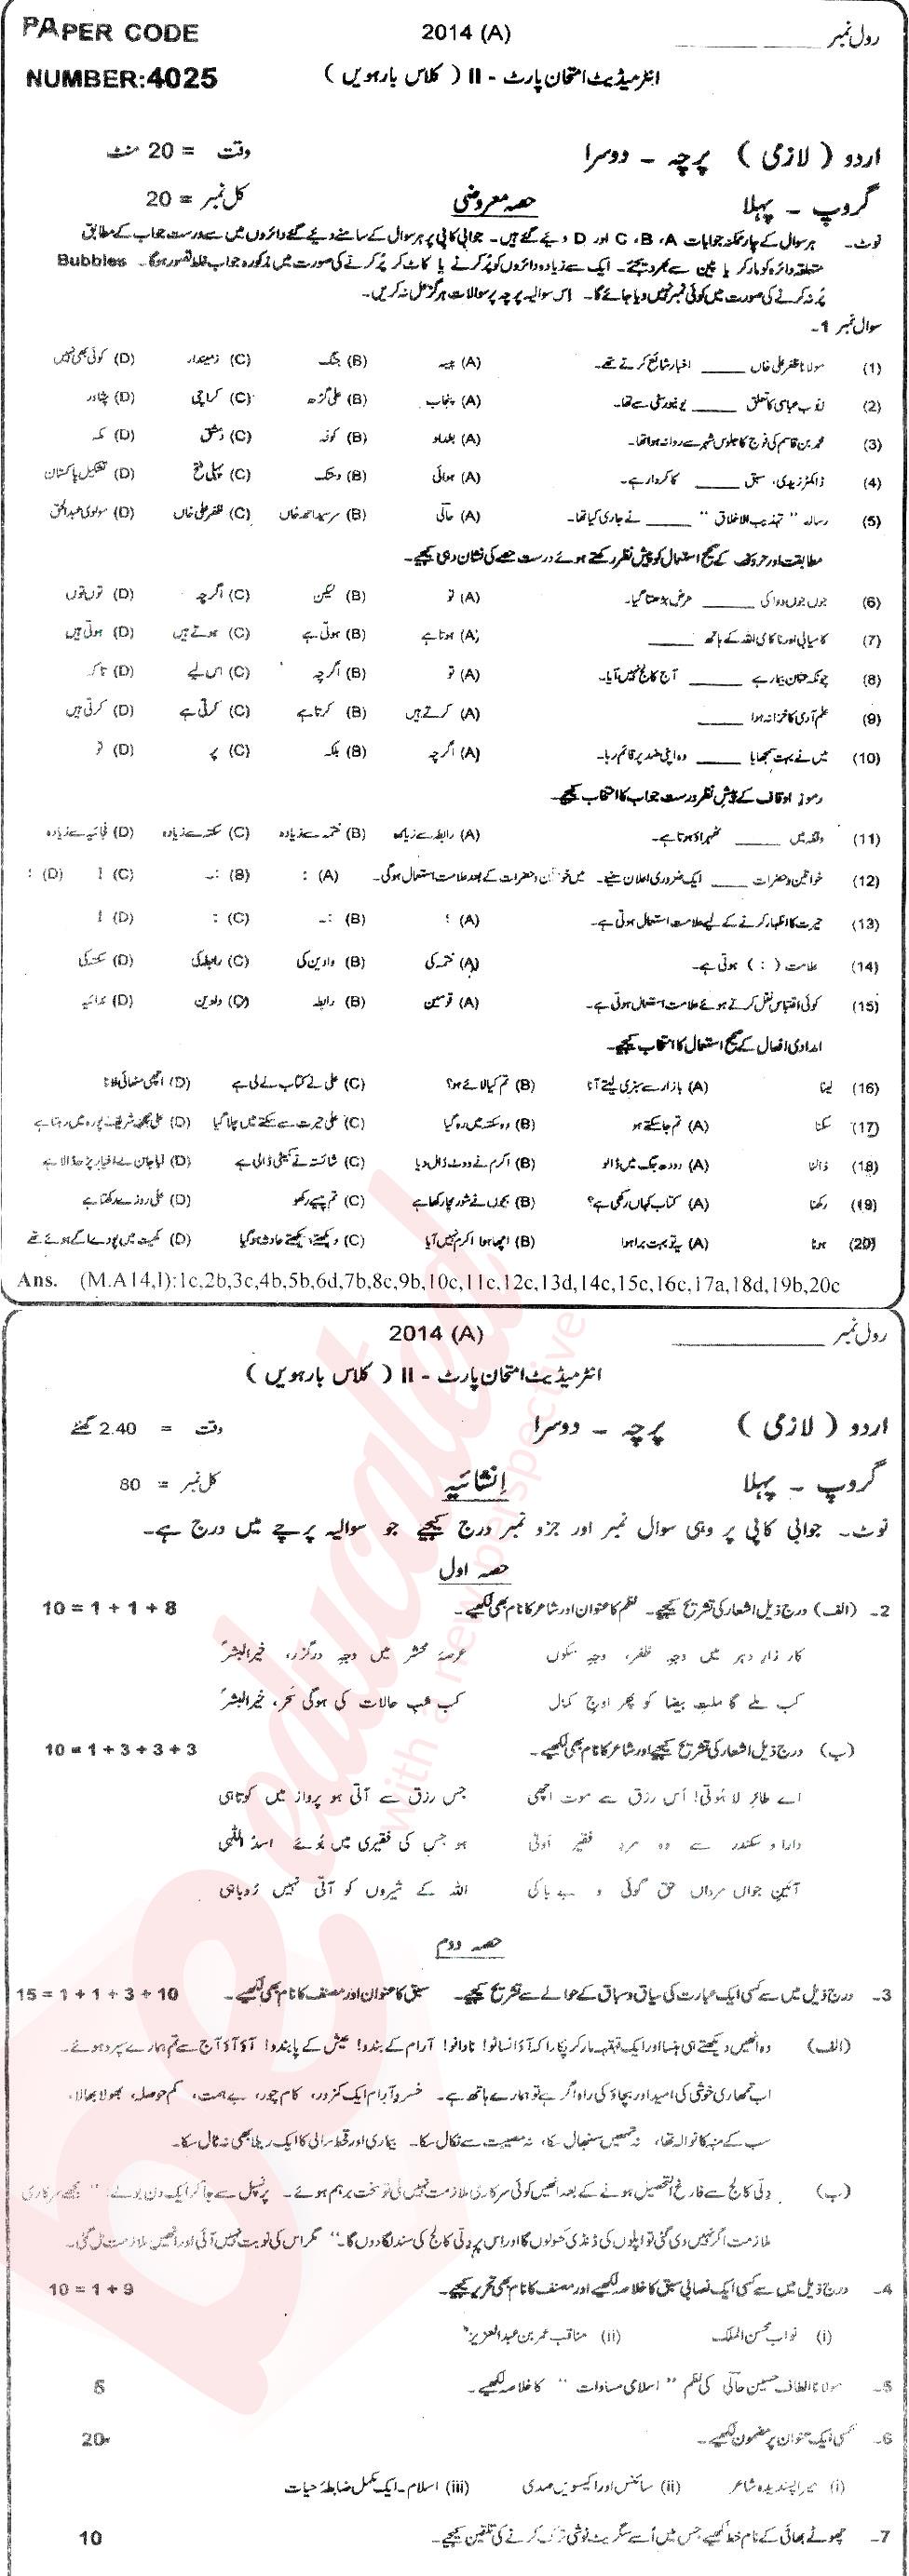 PAPER CODE 2014 (A) رول نمبر
NUMBER:4025 انٹرمیڈیٹ امتحان پارٹ - II ( کلاس بارہویں )
اردو ( لازمی ) پرچہ - دوسرا وقت = 20 منٹ
گروپ - پہلا حصہ معروضی کل نمبر = 20
نوٹ۔ ہر سوال کے چار ممکنہ جوابات A ،B ،C اور D دیئے گئے ہیں۔ جوابی کاپی پر ہر سوال کے سامنے دیئے گئے دائروں میں سے درست جواب کے مطابق
متعلقہ دائرہ کو مارکر یا پین سے بھر دیجئے۔ ایک سے زیادہ دائروں کو پُر کرنے یا کاٹ کر پُر کرنے کی صورت میں مذکورہ جواب غلط تصور ہوگا۔ Bubbles
پُر نہ کرنے کی صورت میں کوئی نمبر نہیں دیا جائے گا۔ اس سوالیہ پرچہ پر سوالات ہرگز حل نہ کریں۔
سوال نمبر 1-
(1) مولانا ظفر علی خاں ____ اخبار شائع کرتے تھے۔ (A) پیسہ (B) جنگ (C) زمیندار (D) کوئی بھی نہیں
(2) ایوب عباسی کا تعلق ____ یونیورسٹی سے تھا۔ (A) پنجاب (B) علی گڑھ (C) کراچی (D) پشاور
(3) محمد بن قاسم کی فوج کا جلوس شہر سے روانہ ہوا تھا۔ (A) بغداد (B) کوفہ (C) دمشق (D) مکہ
(4) ڈاکٹر زیدی، سبق ____ کا کردار ہے۔ (A) ہوائی (B) دستک (C) پہلی فتح (D) تشکیل پاکستان
(5) رسالہ " تہذیب الاخلاق " ____ نے جاری کیا تھا۔ (A) حالی (B) سرسید احمد خاں (C) ظفر علی خاں (D) مولوی عبدالحق
مطابقت اور حروف کے صحیح استعمال کو پیش نظر رکھتے ہوئے درست جملے کی نشان دہی کیجیے۔
(6) جوں جوں دوا کی ____ مرض بڑھتا گیا۔ (A) تو (B) لیکن (C) اگرچہ (D) توں توں
(7) کامیابی اور ناکامی اللہ کے ہاتھ ____ (A) ہوتا ہے (B) ہوتی ہے (C) ہوتے ہیں (D) ہوتی ہیں
(8) چونکہ عثمان بیمار ہے ____ آج کالج نہیں آیا۔ (A) تو (B) اگرچہ (C) اس لیے (D) تاکہ
(9) علم آدمی کا خزانہ ہوا ____ (A) کرتے ہیں (B) کرتا ہے (C) کرتی ہے (D) کرتی ہیں
(10) میں نے بہت سمجھایا ____ وہ اپنی ضد پر قائم رہا۔ (A) اگرچہ (B) بلکہ (C) پر (D) تو
رموز اوقاف کے پیش نظر درست جواب کا انتخاب کیجیے۔
(11) وقفہ میں ____ ٹھہراؤ ہوتا ہے۔ (A) رابطہ سے زیادہ (B) ختمہ سے زیادہ (C) سکتہ سے زیادہ (D) فجائیہ سے زیادہ
(12) خواتین و حضرات ____ ایک ضروری اعلان سنیے۔ میں خواتین و حضرات کے بعد علامت استعمال ہوگی۔ (A) : (B) :۔ (C) ! (D) ؛
(13) حیرت کا اظہار کرنے کے لیے علامت استعمال ہوتی ہے۔ (A) ؛ (B) :۔ (C) : (D) !
(14) علامت ( : ) ہوتی ہے۔ (A) ختمہ کی (B) واوین کی (C) رابطہ کی (D) سکتہ کی
(15) کوئی اقتباس نقل کرتے ہوئے علامت استعمال ہوتی ہے۔ (A) قوسین (B) رابطہ (C) واوین (D) ندائیہ
امدادی افعال کے صحیح استعمال کا انتخاب کیجیے۔
(16) لینا (A) بازار سے سبزی لیتے آنا (B) تم کیا لائے ہو؟ (C) علی نے کتاب لے لی ہے (D) اچھی مٹھائی لانا
(17) سکنا (A) تم جا سکتے ہو (B) وہ سکتہ میں رہ گیا (C) علی حیرت سے سکتے میں چلا گیا (D) علی شریف پورہ میں رہتا ہے
(18) ڈالنا (A) دودھ جگ میں ڈالو (B) اکرم نے ووٹ ڈال دیا (C) شائستہ نے کمیٹی ڈالی ہے (D) ابا جان نے اخبار پڑھ ڈالا ہے
(19) رکھنا (A) کتاب کہاں رکھی ہے؟ (B) بچوں نے شور مچا رکھا ہے (C) تم پیسے رکھو (D) علی روزے رکھتا ہے
(20) ہونا (A) یہ تو بہت برا ہوا (B) اچھا ہوا اکرم نہیں آیا (C) دیکھتے دیکھتے حادثہ ہوگیا (D) کھیت میں پودے اگے ہوئے تھے
Ans. (M.A14,I):1c,2b,3c,4b,5b,6d,7b,8c,9b,10c,11c,12c,13d,14c,15c,16c,17a,18d,19b,20c
2014 (A) رول نمبر
انٹرمیڈیٹ امتحان پارٹ - II ( کلاس بارہویں )
اردو ( لازمی ) پرچہ - دوسرا وقت = 2.40 گھنٹے
گروپ - پہلا اِنشائیہ کل نمبر = 80
نوٹ۔ جوابی کاپی پر وہی سوال نمبر اور جزو نمبر درج کیجیے جو سوالیہ پرچے میں درج ہے۔
حصہ اول
2- (الف) درج ذیل اشعار کی تشریح کیجیے۔ نظم کا عنوان اور شاعر کا نام بھی لکھیے۔ 10 = 1 + 1 + 8
کار زارِ دہر میں وجہِ ظفر، وجہِ سکوں عرصۂ محشر میں وجہِ درگزر، خیرالبشرؐ
کب ملے گا ملتِ بیضا کو پھر اوجِ کمال کب شبِ حالات کی ہوگی سَحر، خیرالبشرؐ
(ب) درج ذیل اشعار کی تشریح کیجیے اور شاعر کا نام بھی لکھیے۔ 10 = 1 + 3 + 3 + 3
اے طائرِ لاہُوتی! اُس رزق سے موت اچھی جس رزق سے آتی ہو پرواز میں کوتاہی
دارا و سکندر سے وہ مردِ فقیر اَولیٰ ہو جس کی فقیری میں بُوئے اسدُ اللّٰہی
آئینِ جواں مرداں حق گوئی و بے باکی اللہ کے شیروں کو آتی نہیں رُوباہی
حصہ دوم
3- درج ذیل میں سے کسی ایک عبارت کی سیاق و سباق کے حوالے سے تشریح کیجیے۔ سبق کا عنوان اور مصنف کا نام بھی لکھیے۔ 15 = 1 + 1 + 3 + 10
(الف) وہ انھیں دیکھتے ہی ہنسا اور ایک قہقہہ مار کر پکارا کہ آؤ انسانو! نادانو! آرام کے بندو! عیش کے پابندو! آؤ آؤ آج سے تم ہمارے سپرد ہوئے۔
اب تمھاری خوشی کی امید اور بچاؤ کی راہ اگر ہے تو ہمارے ہاتھ ہے۔ خسرو آرام ایک کمزور، کام چور، بے ہمت، کم حوصلہ، بھولا بھالا،
سب کے منہ کا نوالہ تھا، نہ تمھیں سنبھال سکا، نہ مصیبت سے نکال سکا۔ بیماری اور قحط سالی کا ایک ریلا بھی نہ ٹال سکا۔
(ب) دِلّی کالج سے فارغ التحصیل ہونے کے بعد انھیں کوئی سرکاری ملازمت نہیں ملی تو سخت برہم ہوئے۔ پرنسپل سے جا کر ایک دن بولے: " مجھے سرکاری
ملازمت اگر نہیں دی گئی تو اپلوں کی ڈنڈی کھولوں گا اور اس پر دِلّی کالج کی سند لگا دوں گا۔" مگر اس کی نوبت نہیں آئی اور انھیں ملازمت مل گئی۔
4- درج ذیل میں سے کسی ایک نصابی سبق کا خلاصہ لکھیے اور مصنف کا نام بھی تحریر کیجیے۔ 10 = 1 + 9
(i) نواب محسن الملک (ii) مناقب عمر بن عبدالعزیزؒ
5- مولانا الطاف حسین حالی کی نظم " اسلامی مساوات " کا خلاصہ لکھیے۔ 5
6- کسی ایک عنوان پر مضمون لکھیے۔ 20
(i) میرا پسندیدہ شاعر (ii) سائنس اور اکیسویں صدی (iii) اسلام۔ ایک مکمل ضابطۂ حیات
7- چھوٹے بھائی کے نام خط لکھیے جس میں اُسے سگریٹ نوشی ترک کرنے کی تلقین کیجیے۔ 10